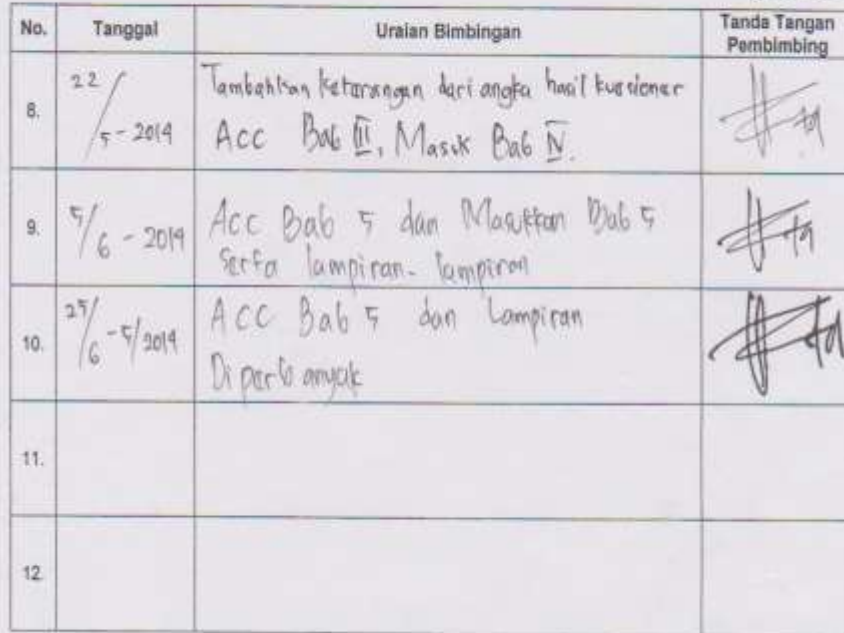 No. Tanggal Uraian Bimbingan Tanda Tangan Pembimbing
8. 22/5-2014 Tambahkan keterangan dari angka hasil kuesioner
Acc Bab III, Masuk Bab IV.
9. 5/6 - 2014 Acc Bab 5 dan Masukkan Bab 5
Serta lampiran-lampiran
10. 25/6 -5/2014 ACC Bab 5 dan Lampiran
Diperbanyak
11.
12.